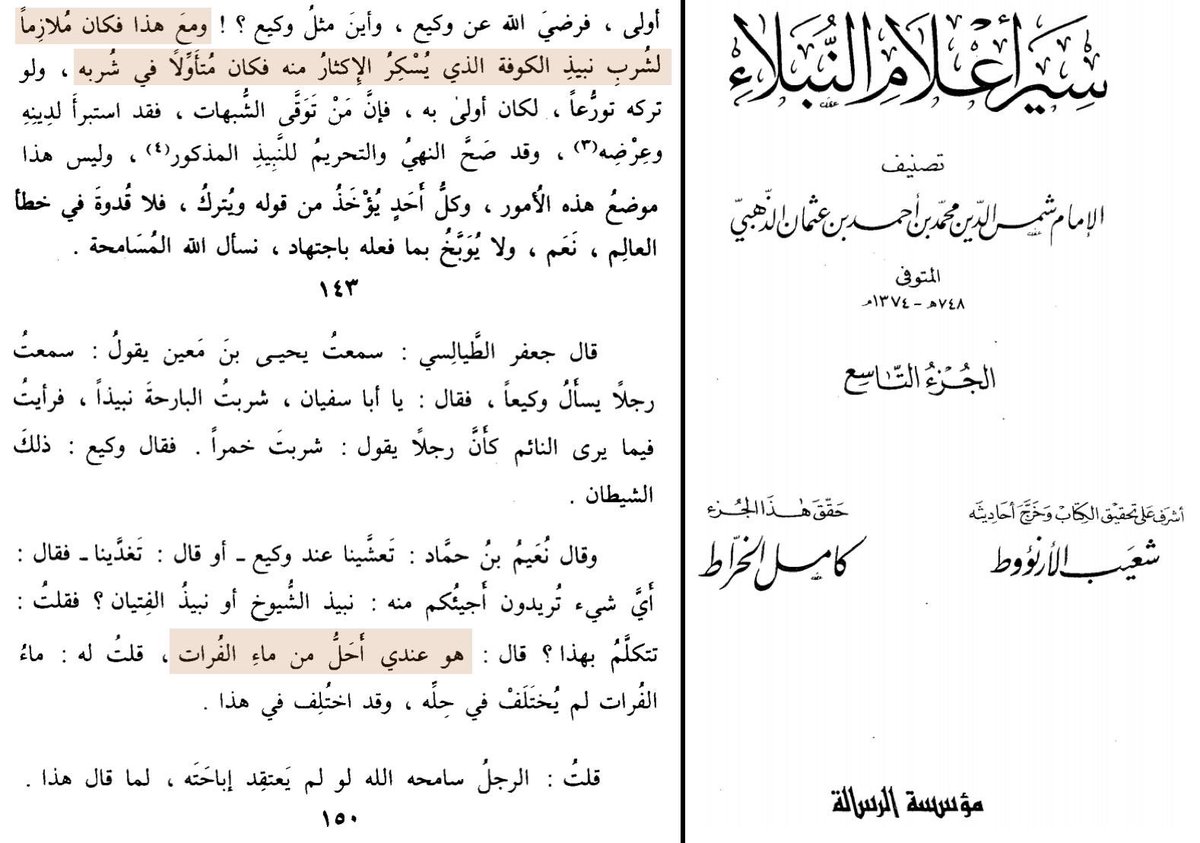 سِيَرُ أَعْلَامِ النُّبَلَاءِ
تصنيف
الإمام شمس الدّين محمّد بن أحمد بن عثمان الذّهبيّ
المتوفى
٧٤٨هـ - ١٣٧٤م
الجُزءُ التَّاسِع
أشرف على تحقيق الكِتاب وَخَرَّجَ أحَاديثَه
شعَيب الأرنؤوط
حَقّقَ هٰذَا الجُزء
كامل الخرّاط
مؤسسة الرسالة
أولى ، فرضيَ الله عن وكيع ، وأينَ مثلُ وكيع ؟ ! ومعَ هذا فكان مُلازِماً
لشُربِ نبيذِ الكوفة الذي يُسْكِرُ الإِكثارُ منه فكان مُتأَوِّلاً في شُربه ، ولو
تركه تورُّعاً ، لكان أولىٰ به ، فإنَّ مَنْ تَوَقَّى الشُّبهات ، فقد استبرأَ لدِينِهِ
وعِرْضِه(٣) ، وقد صَحَّ النهيُ والتحريمُ للنَّبِيذِ المذكور(٤) ، وليس هذا
موضعُ هذه الأمور ، وكلُّ أَحَدٍ يُؤْخَذُ من قوله ويُتركُ ، فلا قُدوةَ في خطأ
العالِم ، نَعَم ، ولا يُوَبَّخُ بما فعله باجتهاد ، نسأل الله المُسَامحة .
١٤٣
قال جعفر الطَّيالِسي : سمعتُ يحيـى بنَ مَعين يقولُ : سمعتُ
رجلاً يسأَلُ وكيعاً ، فقال : يا أبا سفيان ، شربتُ البارحةَ نبيذاً ، فرأيتُ
فيما يرى النائم كأَنَّ رجلاً يقول : شربتَ خمراً . فقال وكيع : ذلكَ
الشيطان .
وقال نُعَيمُ بنُ حمَّاد : تَعشَّينا عند وكيع ـ أو قال : تَغدَّينا ـ فقال :
أَيَّ شيء تُريدون أَجيئُكم منه : نبيذ الشُّيوخ أو نبيذُ الفِتيان ؟ فقلتُ :
تتكلَّمُ بهذا ؟ قال : هو عندي أَحَلُّ من ماءِ الفُرات ، قلتُ له : ماءُ
الفُرات لم يُختَلَفْ في حِلِّه ، وقد اختُلِف في هذا .
قلتُ : الرجلُ سامحه الله لو لم يَعتقِد إباحَتَه ، لما قال هذا .
١٥٠